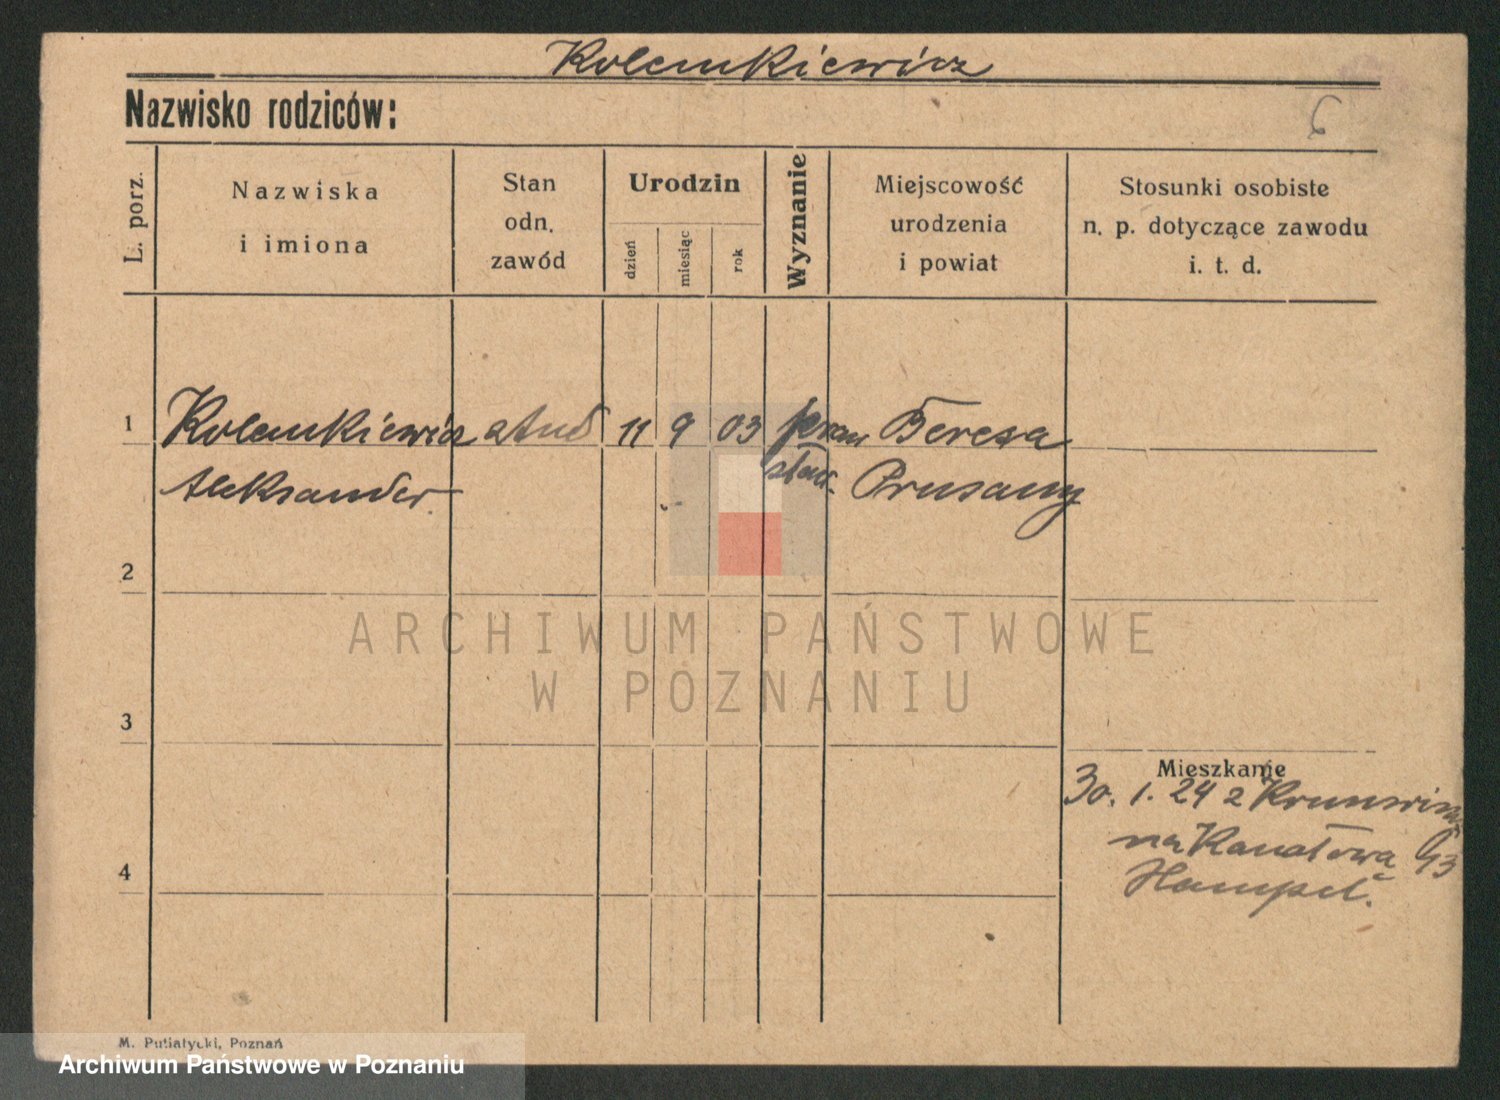 Kolankiewicz
Nazwisko rodziców:
6
L. porz.
Nazwiska
i imiona
Stan
odn.
zawód
Urodzin
dzień
miesiąc
rok
Wyznanie
Miejscowość
urodzenia
i powiat
Stosunki osobiste
n. p. dotyczące zawodu
i. t. d.
1 Kolankiewicz stud 11 9 03 praw Bereza
Aleksander sław. Prusany
2
ARCHIWUM PAŃSTWOWE
W POZNANIU
3
Mieszkanie
30. 1. 24 z
na Kanałowa 43
4
Hampel.
M. Putiatycki, Poznań
Archiwum Państwowe w Poznaniu